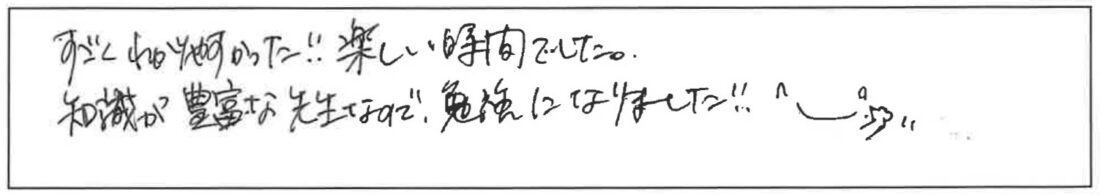 すごくわかり易かった!! 楽しい時間でした。
知識が豊富な先生なので、勉強になりました!!